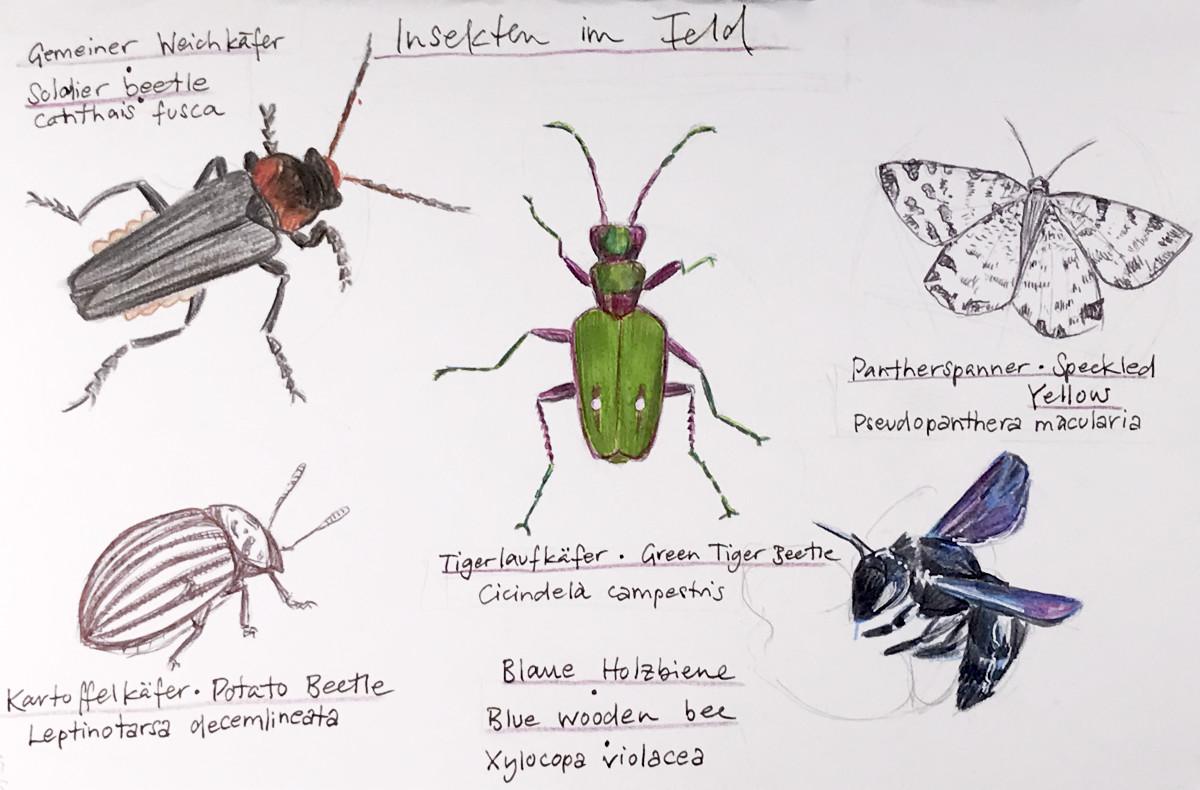 Insekten im Feld
Gemeiner Weichkäfer
·
Soldier beetle
Canthais fusca
Pantherspanner · Speckled
Yellow
Pseudopanthera macularia
Tigerlaufkäfer · Green Tiger Beetle
Cicindela campestris
Kartoffelkäfer · Potato Beetle
Leptinotarsa decemlineata
Blaue Holzbiene
·
Blue wooden bee
·
Xylocopa violacea